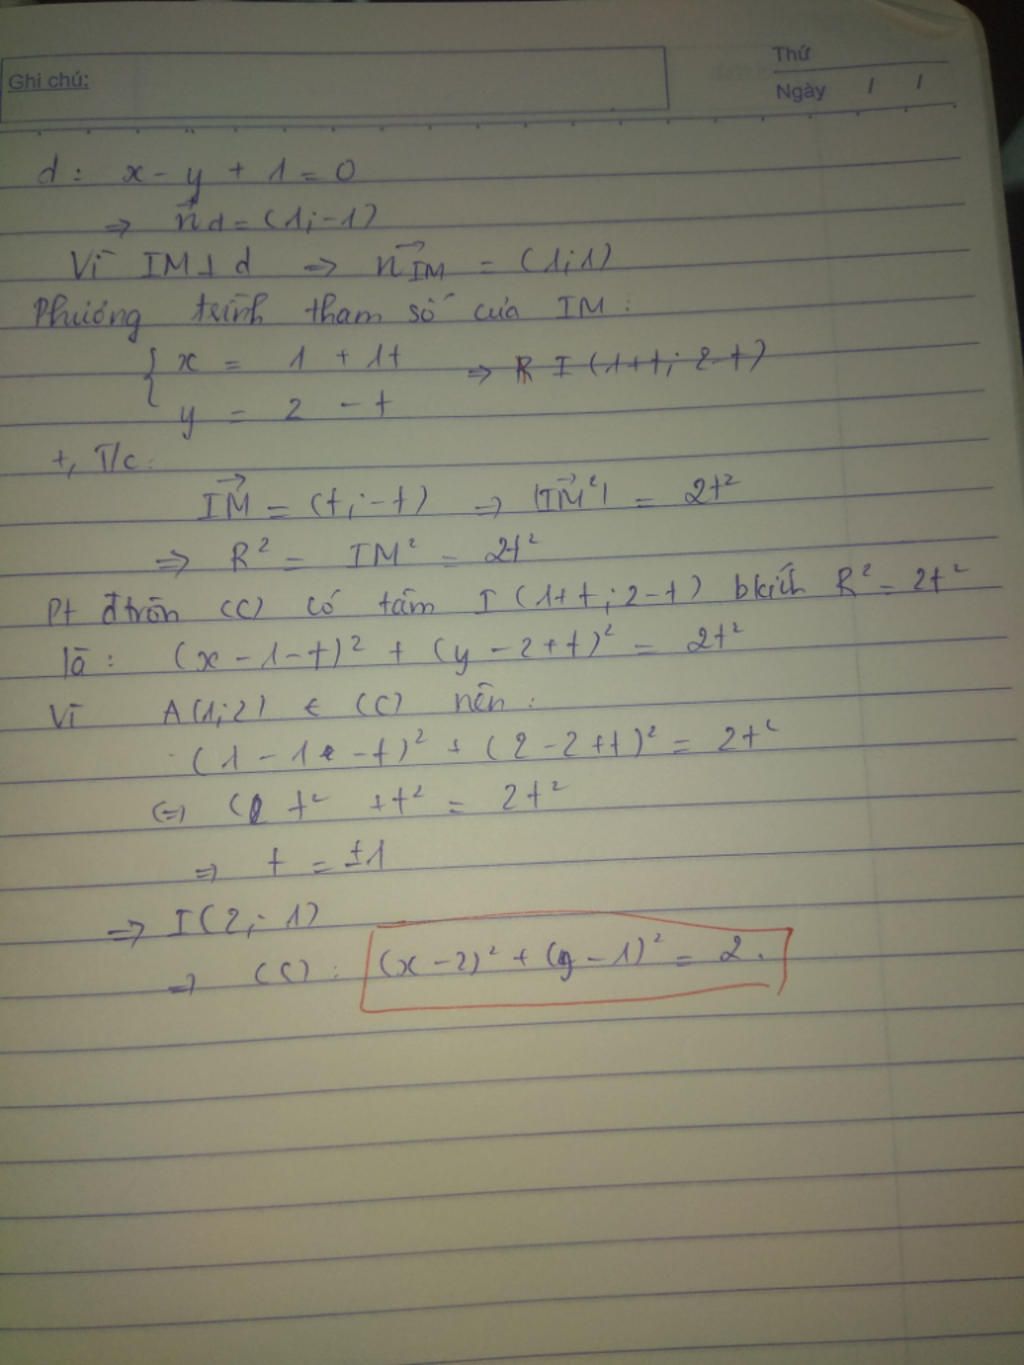 Ghi chú:
Thứ
Ngày / /
d: x - y + 1 = 0
⇒ n⃗d = (1;-1)
Vì IM ⊥ d ⇒ n⃗IM = (1;1)
Phương trình tham số của IM:
{ x = 1 + 1t ⇒ R I (1+t; 2-t)
y = 2 - t
+, T/c:
IM⃗ = (t;-t) ⇒ |IM⃗²| = 2t²
⇒ R² = IM² = 2t²
Pt đtròn (C) có tâm I (1+t; 2-t) bkích R² = 2t²
là: (x - 1 - t)² + (y - 2 + t)² = 2t²
Vì A(1;2) ∈ (C) nên:
(1 - 1 - t)² + (2 - 2 + t)² = 2t²
(=) t² + t² = 2t²
⇒ t = ±1
⇒ I(2; 1)
⇒ (C): (x - 2)² + (y - 1)² = 2.